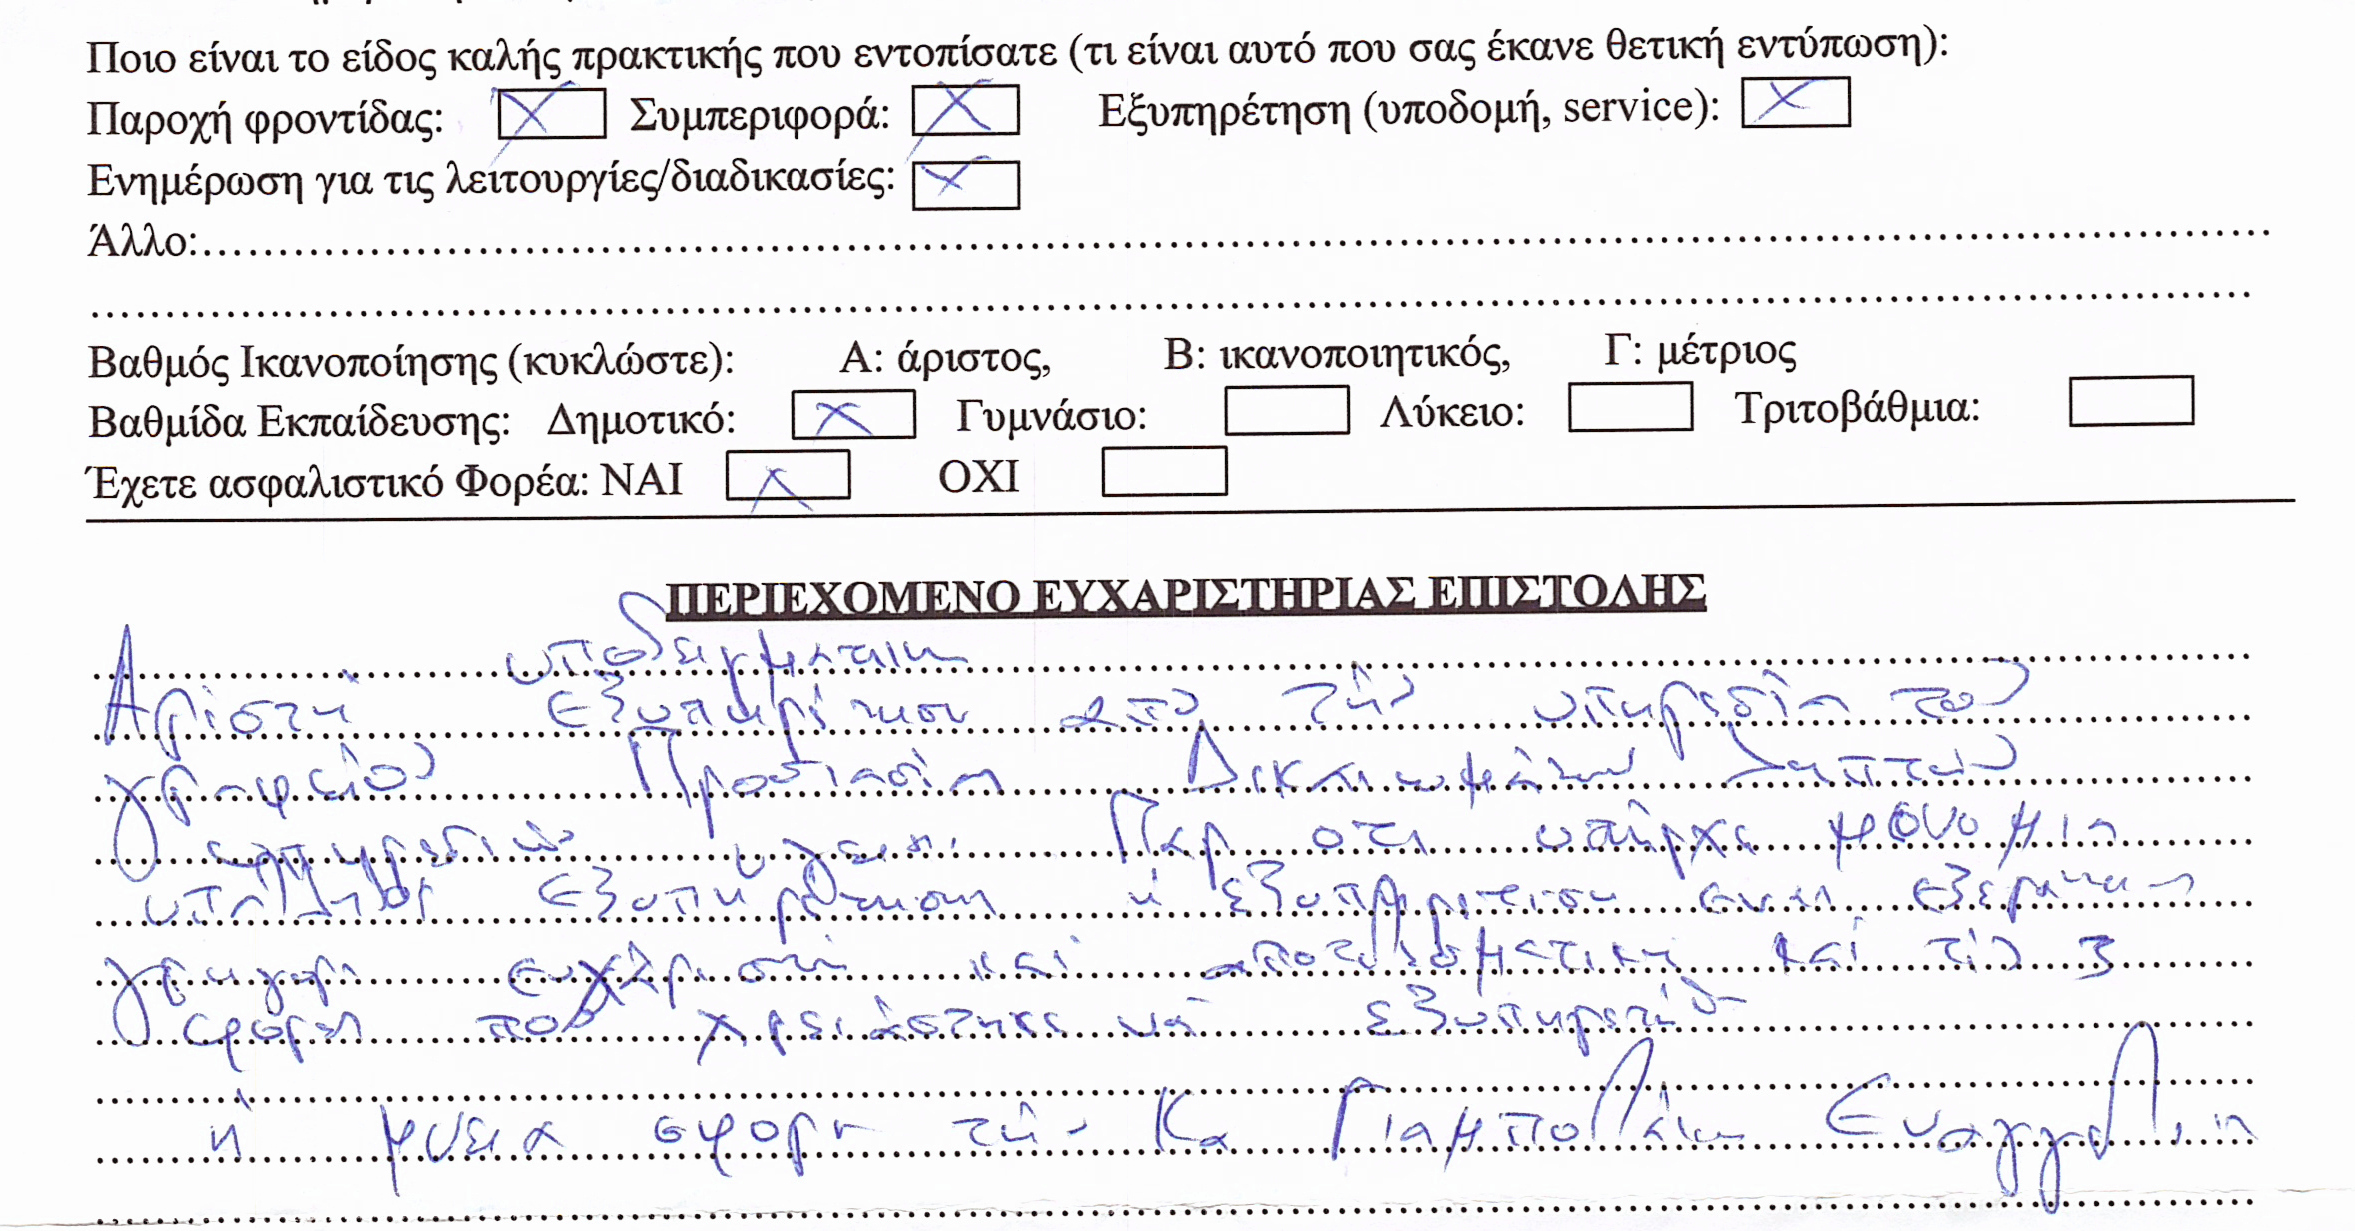 Ποιο είναι το είδος καλής πρακτικής που εντοπίσατε (τι είναι αυτό που σας έκανε θετική εντύπωση):
Παροχή φροντίδας: Συμπεριφορά: Εξυπηρέτηση (υποδομή, service):
Ενημέρωση για τις λειτουργίες/διαδικασίες:
Άλλο:
Βαθμός Ικανοποίησης (κυκλώστε): Α: άριστος, Β: ικανοποιητικός, Γ: μέτριος
Βαθμίδα Εκπαίδευσης: Δημοτικό: Γυμνάσιο: Λύκειο: Τριτοβάθμια:
Έχετε ασφαλιστικό Φορέα: ΝΑΙ ΟΧΙ
ΠΕΡΙΕΧΟΜΕΝΟ ΕΥΧΑΡΙΣΤΗΡΙΑΣ ΕΠΙΣΤΟΛΗΣ
υποδειγματικη
Αρίστη εξυπηρέτηση από τήν υπηρεσία του
γραφείου Προστασία Δικαιωμάτων Ληπτών
υπηρεσιών υγείας. Παρ οτι υπήρχε μόνο μια
υπάλληλος εξυπηρέτησης ή εξυπηρετιση
γρηγορη ευχάριστη καί αποτελσματικη καί τίς 3
φορες που χρειάστηκε νά εξυπηρετηθ
ή μνεια αφορα τήν Κα Γιαμπολάκη Ευαγγελια